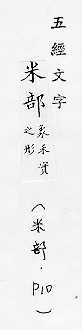 五經文字
米部 象禾實
之形
(米部·P10)